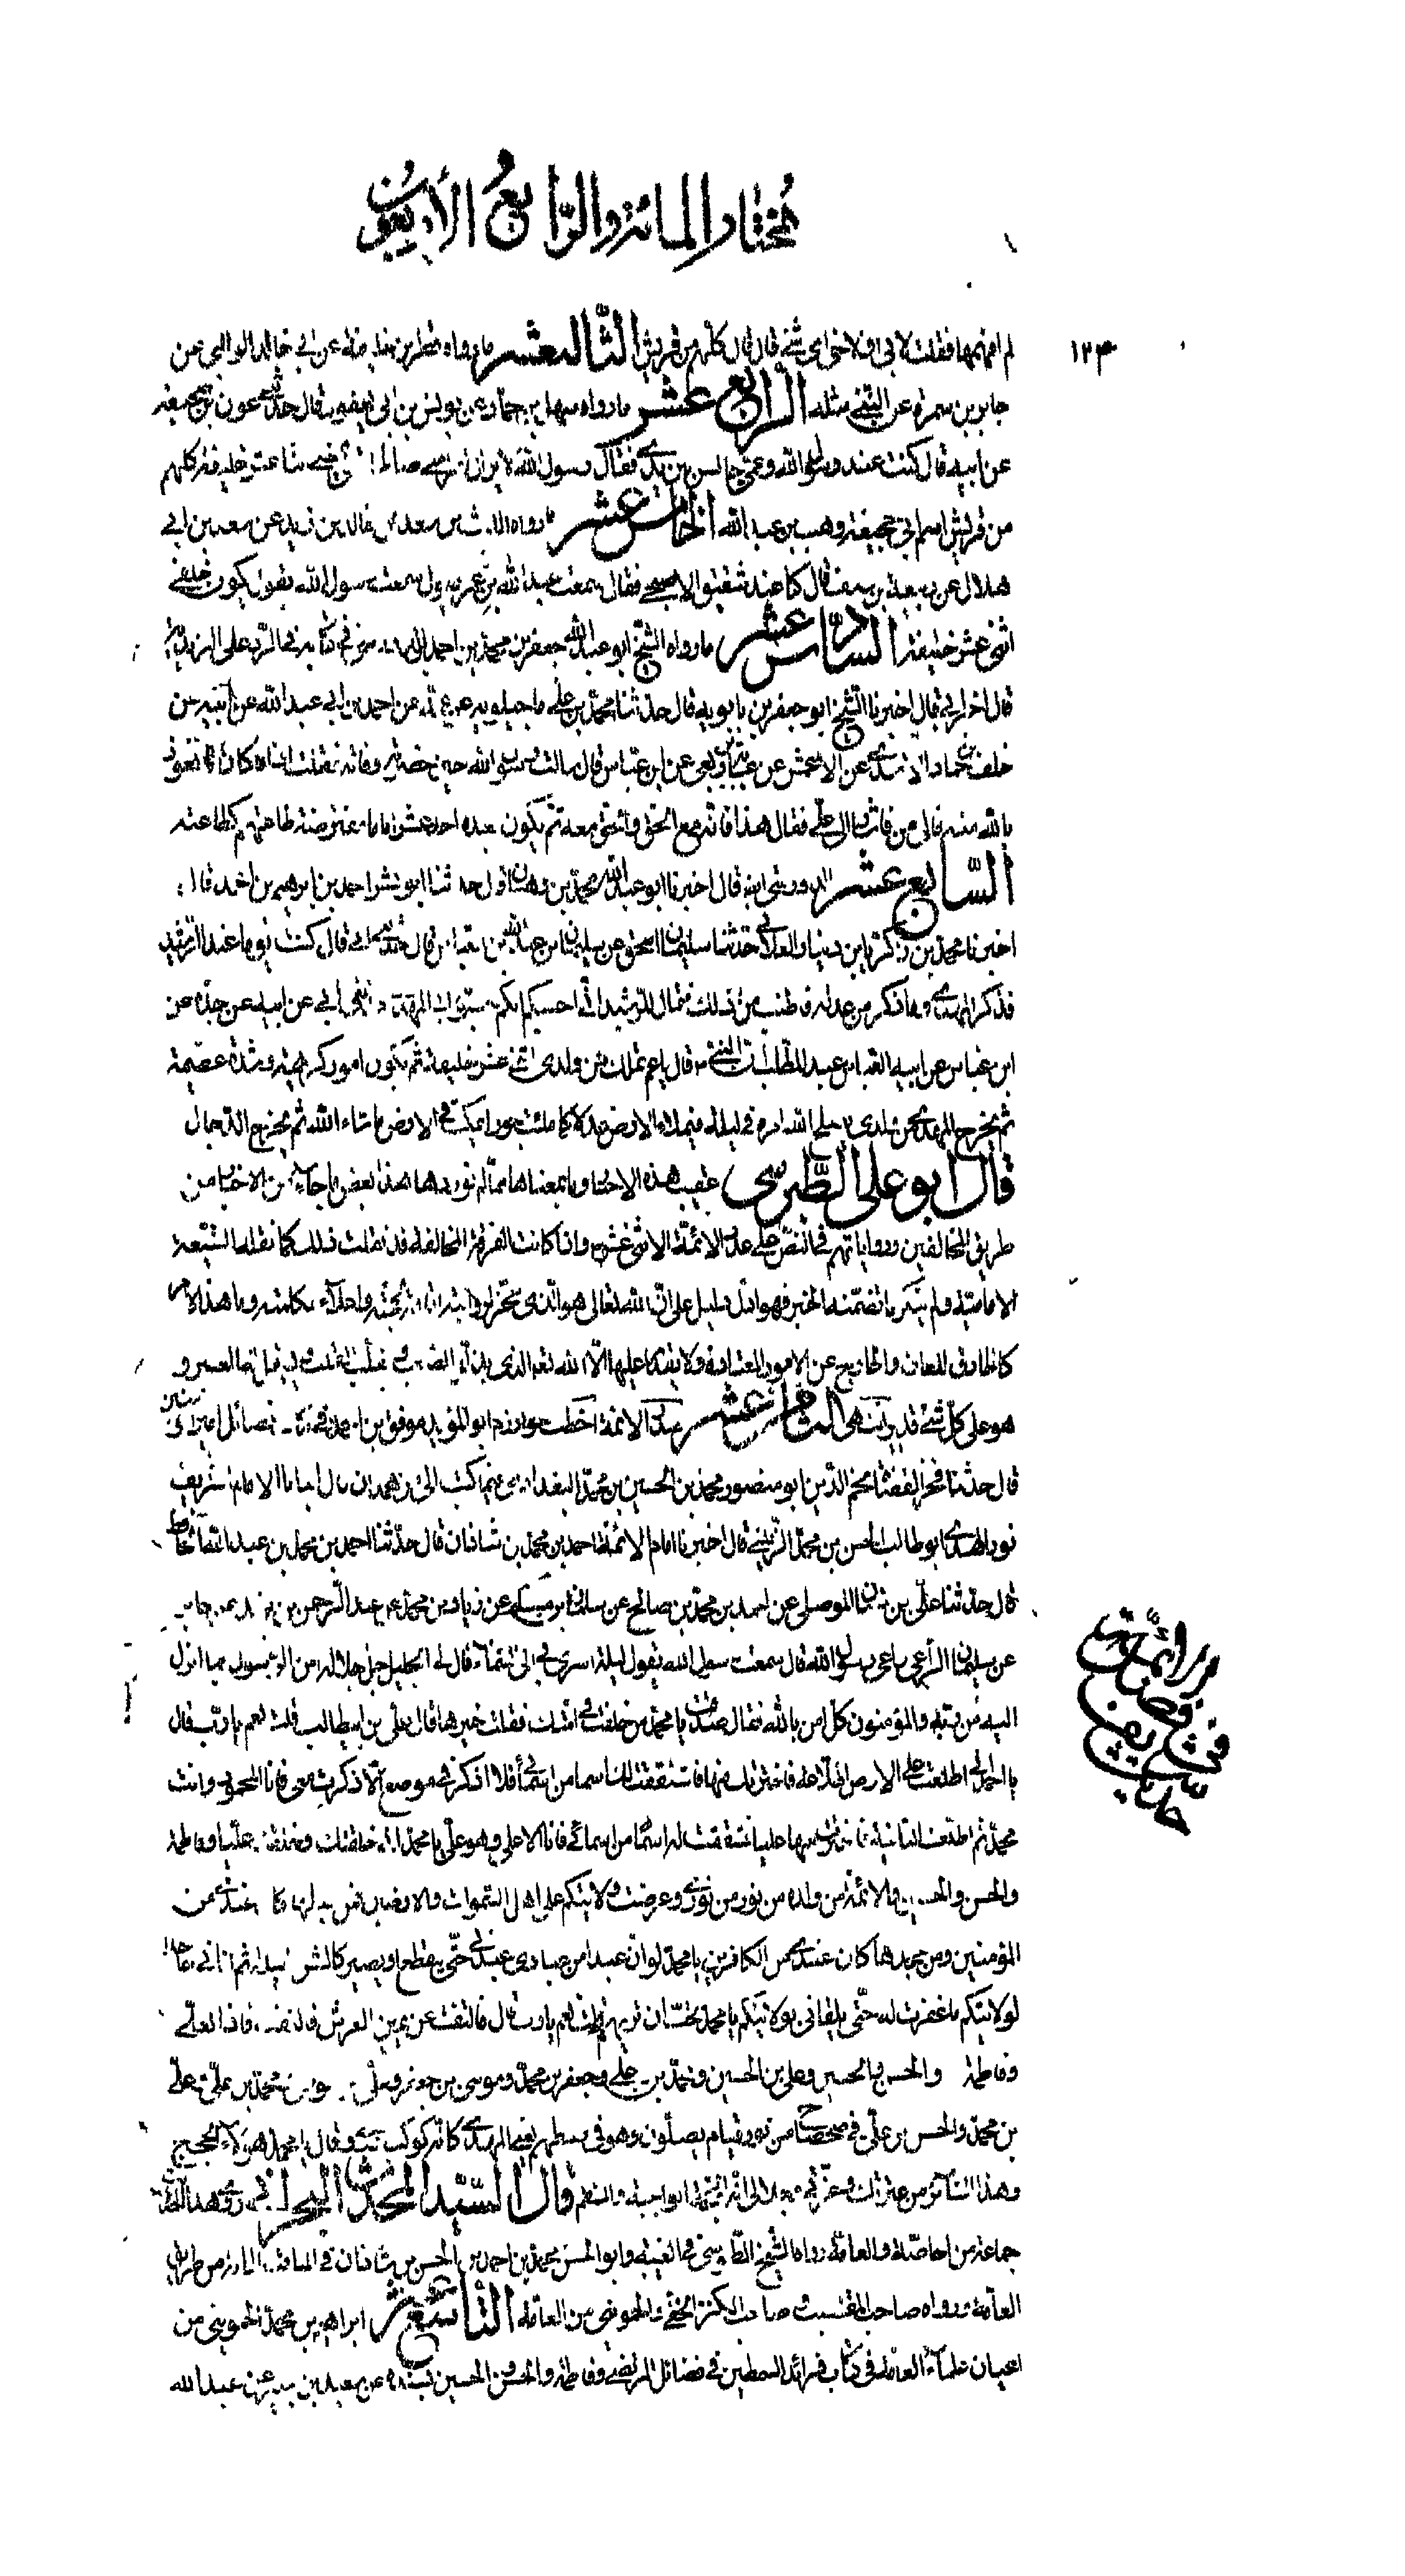 مختار المائة والرابع الأربعون
١٢٣
لم افهمها فقلت لابي او لاخي اي شئ قال قال كلهم من قريش الثالث عشر ما رواه فطر بن خليفة عن ابي خالد الوالبي عن
جابر بن سمرة عن النبي مثله الرابع عشر ما رواه سهل بن حماد عن يونس بن ابي يعفور قال حدثني عون بن ابي جحيفة
عن ابيه قال كنت عند رسول الله وعمي جالس بين يدي فقال رسول الله لا يزال امر امتي صالحا حتى يمضي اثنا عشر خليفة كلهم
من قريش اسم ابي جحيفة وهب بن عبد الله الخامس عشر ما رواه الليث بن سعد عن خالد بن يزيد عن سعيد بن ابي
هلال عن ربيعة بن سيف قال كنا عند شفيق الاصبحي فقال سمعت عبد الله بن عمر يقول سمعت رسول الله يقول يكون خلفي
اثني عشر خليفة السادس عشر ما رواه الشيخ ابو عبد الله جعفر بن محمد بن احمد في كتابه في الرد على الزيدية
قال اخبرني ابي قال اخبرنا الشيخ ابو جعفر بن بابويه قال حدثنا محمد بن علي ماجيلويه عن عمه عن احمد بن ابي عبد الله عن ابيه عن
خلف بن حماد الاسدي عن الاعمش عن عباية بن ربعي عن ابن عباس قال سالت رسول الله حين حضرته وفاته فقلت اذا كان ما نعوذ
بالله منه فالى من فاشار الى علي فقال هذا فانه مع الحق والحق معه ثم يكون بعده احد عشر اماما مفترضة طاعتهم كطاعته
السابع عشر الدوريستي ابيه قال اخبرنا ابو عبد الله محمد بن وهبان قال حدثنا ابو بشر احمد بن ابرهيم بن احمد قال
اخبرنا محمد بن زكريا بن دينار الغلابي حدثنا سليمان بن اسحق بن سليمان بن علي بن عبد الله بن العباس قال حدثني ابي قال كنت يوما عند الرشيد
فذكر المهدي وما ذكر من عدله فاطنب من ذلك فقال الرشيد اني احسبكم انكم تحسبونه ابي المهدي حدثني ابي عن ابيه عن جده عن
ابن عباس عن ابيه العباس بن عبد المطلب ان النبي قال يا عم يملك من ولدي اثني عشر خليفة ثم يكون امور كريهة وشدة عظيمة
ثم يخرج المهدي من ولدي يصلح الله امره في ليلة فيملاء الارض عدلا كما ملئت جورا يمكث في الارض ما شاء الله ثم يخرج الدجال
قال ابو علي الطبرسي عقيب هذه الاخبار وما بمعناها مما لم نوردها هذا بعض ما جاء من الاخبار من
طريق المخالفين ورواياتهم في النص على عدد الائمة الاثني عشر واذا كانت الفرقة المخالفة قد نقلت ذلك كما نقله الشيعة
الامامية ولم ينكر ما تضمنه الخبر فهو ادل دليل على ان الله تعالى هو الذي سخرهم لروايته اقامة لحجته واعلاء لكلمته وما هذا الامر
كالخارق للعادة والخارج عن الامور المعتادة ولا يقدر عليها الا الله تعالى الذي يذلل الصعب ويقلب القلب ويسهل له العسير و
هو على كل شئ قدير انتهى الثامن عشر صدر الائمة اخطب خوارزم ابو المؤيد موفق بن احمد في كتابه فضائل امير المؤمنين
قال حدثنا فخر القضاة نجم الدين ابو منصور محمد بن الحسين بن محمد البغدادي فيما كتب الي من همدان قال انبانا الامام الشريف
نور الهدى ابو طالب الحسن بن محمد الزينبي قال اخبرنا امام الائمة احمد بن محمد بن شاذان قال حدثنا احمد بن محمد بن عبد الله الحافظ
قال حدثنا علي بن سنان الموصلي عن احمد بن محمد بن صالح عن سلمان بن محمد عن زياد بن مسلم عن عبد الرحمن بن يزيد بن جابر
عن سليمان الراعي راعي رسول الله قال سمعت رسول الله يقول ليلة اسري بي الى السماء قال لي الجليل جل جلاله امن الرسول بما انزل
اليه من ربه والمؤمنون كل امن بالله فقال صدقت يا محمد من خلفت في امتك فقلت خيرها قال علي بن ابيطالب قلت نعم يا رب قال
يا محمد اني اطلعت على الارض اطلاعة فاخترتك منها فاشتققت لك اسما من اسمائي فلا اذكر في موضع الا ذكرت معي فانا المحمود وانت
محمد ثم اطلعت الثانية فاخترت منها عليا فشققت له اسما من اسمائي فانا الاعلى وهو علي يا محمد اني خلقتك وخلقت عليا وفاطمة
والحسن والحسين والائمة من ولده من نور من نوري وعرضت ولايتكم على اهل السموات والارضين فمن قبلها كان عندي من
المؤمنين ومن جحدها كان عندي من الكافرين يا محمد لو ان عبدا من عبادي عبدني حتى ينقطع ويصير كالشن البالي ثم اتاني جاحدا
لولايتكم ما غفرت له حتى يلقاني بولايتكم يا محمد تحب ان تريهم قلت نعم يا رب قال فالتفت عن يمين العرش فالتفت فاذا بعلي
وفاطمة والحسن والحسين وعلي بن الحسين ومحمد بن علي وجعفر بن محمد وموسى بن جعفر وعلي بن موسى ومحمد بن علي وعلي
بن محمد والحسن بن علي في ضحضاح من نور قيام يصلون وهو في وسطهم يعني المهدي كانه كوكب دري وقال يا محمد هؤلاء الحجج
وهذا الثائر من عترتك وعزتي وجلالي انه الحجة الواجبة والمنتقم قال السيد المحدث البحراني روى هذا الحديث
جماعة من الخاصة والعامة رواه الشيخ الطوسي في الغيبة وابو الحسن محمد بن احمد بن الحسن بن شاذان في المناقب المائة من طريق
العامة ورواه صاحب المقتضب وصاحب الكنز الخفي والحمويني من العامة التاسع عشر ابراهيم بن محمد الحمويني من
اعيان علماء العامة في كتاب فرائد السمطين في فضائل المرتضى وفاطمة والحسن والحسين بسنده عن سعيد بن جبير عن عبد الله